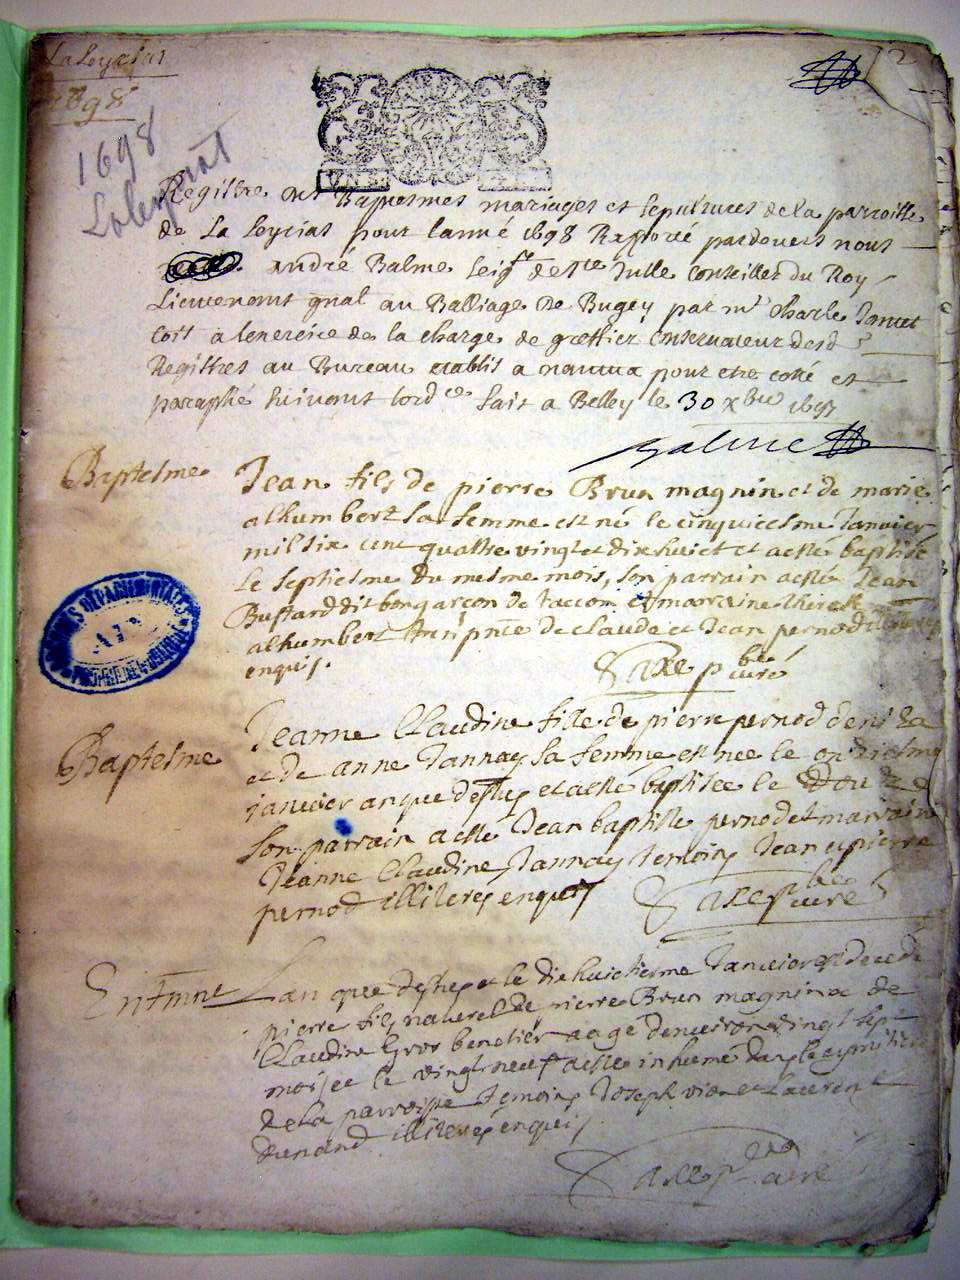 La Leyriat
1698
2
1698
Laleyriat
Registre des Baptesmes mariages et sepultures de la parroisse
de La Leyriat pour lanné 1698 Raporté pardevers nous
andré Balme seigr de Ste Julle Conseiller du Roy
Lieutenant gnal au Balliage de Bugey par mr Charle
à lexercice de la charge de greffier Conservateur desd
Registres au Bureau etablis a nantua pour etre cotté et
paraphé suivant lord ce fait a Belley le 30 xbre 1697
Balme
Baptesme
Jean fils de pierre Brun magnin et de marie
alhumbert sa femme est né le cinquiesme Janvier
mil six cent quattre vingt et dixhuict et a esté baptisé
le septiesme du mesme mois, son parrain a esté Jean
Bustand dit bongarçon de et marraine
alhumbert de claude et Jean pernod
enquis.
curé
Baptesme
Jeanne Claudine fille de pierre pernod
et de anne Jannay sa femme est nee le onziesme
janvier an que dessus et a esté baptisee le
son parrain a esté Jean baptiste pernod et marraine
Jeanne Claudine Jannay temoins Jean et pierre
pernod illiteres enquis
curé
Lan que dessus et le dixhuictiesme Janvier est decedé
pierre fils naturel de pierre Brun magnin et de
Claudine Gros benetier aagé denviron vingt sept
mois et le vingt neuf a esté inhumé dans le cymitiere
de la parroisse temoins Joseph et Laurent
dunand illiteres enquis
curé